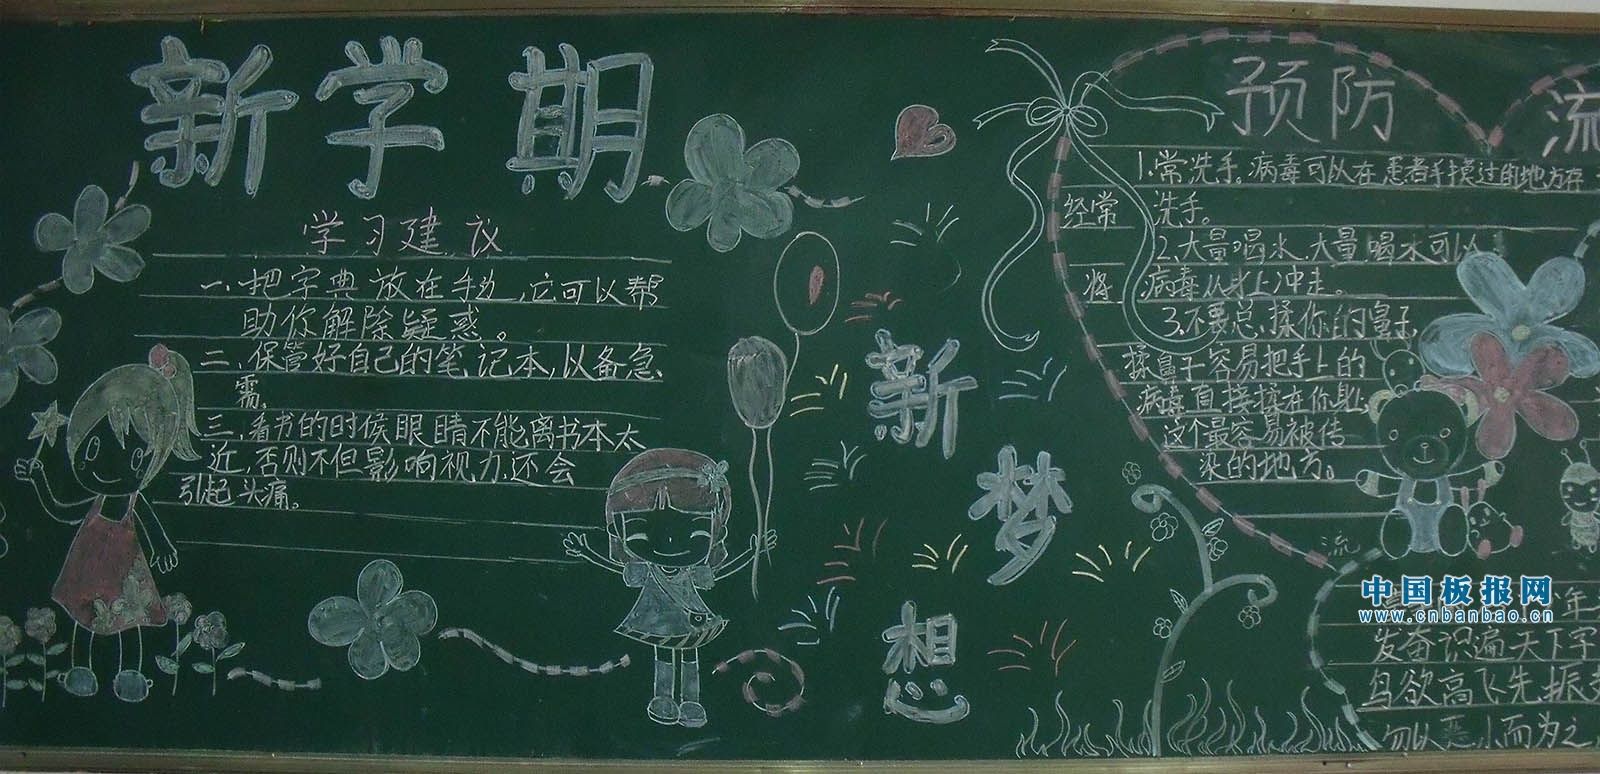 新学期
学习建议
一、把字典放在手边,它可以帮
助你解除疑惑。
二、保管好自己的笔记本,以备急
需。
三、看书的时候眼睛不能离书本太
近,否则不但影响视力,还会
引起头痛。
新
梦
想
预防流
1.常洗手。病毒可以在患者手摸过的地方存
经常 洗手。
2.大量喝水,大量喝水可以
将 病毒从身上冲走。
3.不要总揉你的鼻子,
揉鼻子容易把手上的
病毒直接揉在你身上,
这个最容易被传
染的地方。
流
中国板报网
www.cnbanbao.cn
年
发奋识遍天下字
鸟欲高飞先振
勿以恶小而为之